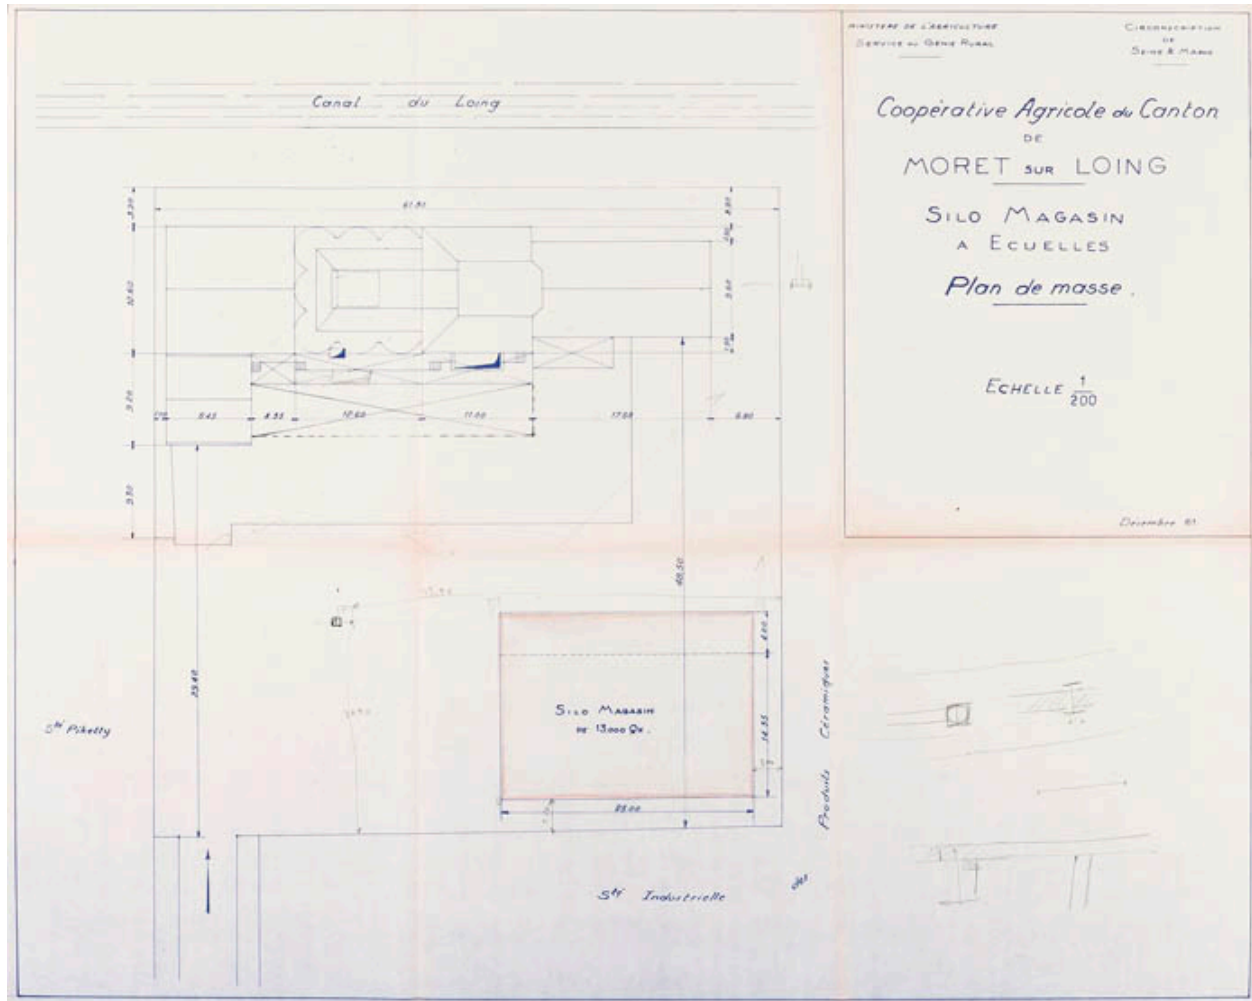 MINISTERE DE L'AGRICULTURE
SERVICE DU GENIE RURAL
CIRCONSCRIPTION
DE
SEINE & MARNE
Coopérative Agricole du Canton
DE
MORET SUR LOING
SILO MAGASIN
A ECUELLES
Plan de masse.
ECHELLE 1/200
Décembre
Canal du Loing
61.90
10.60
9.20
9.30
12.60
11.00
17.60
6.90
40.50
39.40
4.00
14.35
25.00
SILO MAGASIN
DE 13.000 Qx.
Sté Piketty
Produits Céramiques
Sté Industrielle
des